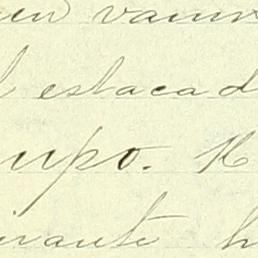 en vamo
l estacad
upo. H
irante h